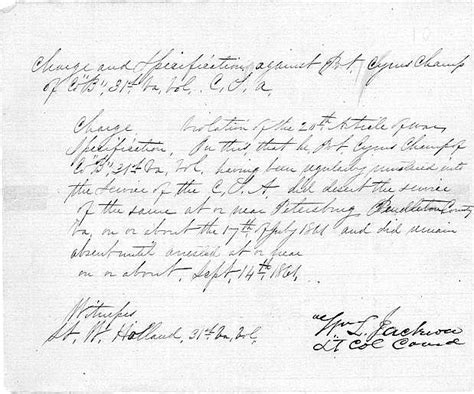 Charge and Specification against Pvt. Cyrus Champ
of Co "B", 31st Va, Vol, C. S. A.
Charge Violation of the 20th Article of war
Specification. In this that he Pvt Cyrus Champ of
Co "B", 31st Va, Vol, having been regularly mustered into
the Service of the C. S. A. did desert the service
of the same at or near Petersburg Pendleton County
Va, on or about the 17th of July 1861 and did remain
absent until arrested at or near
on or about Sept, 14th 1861,
Witness
Lt. W. Holland, 31st Va, Vol,
Wm L. Jackson
Lt Col Comd